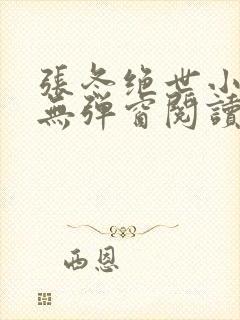 張冬绝世小
無彈窗閱讀
西恩